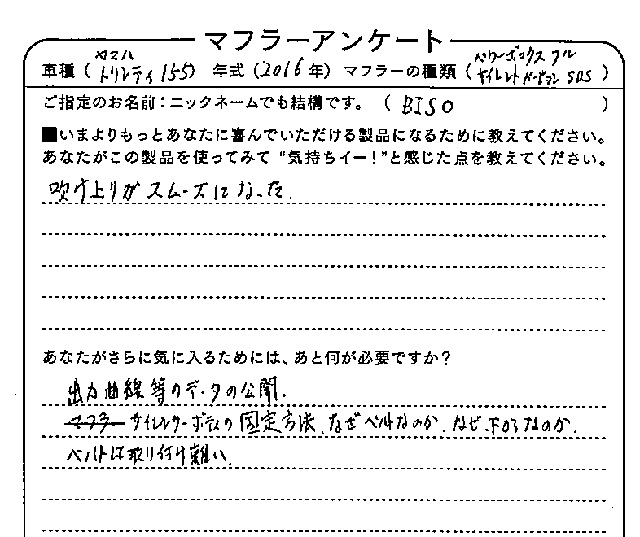 マフラーアンケート
車種 (ヤマハ トリシティ 155) 年式 (2016年) マフラーの種類 (パワーボックス フル サイレントバージョン SUS)
ご指定のお名前:ニックネームでも結構です。 (BISO)
■いまよりもっとあなたに喜んでいただける製品になるために教えてください。
あなたがこの製品を使ってみて “気持ちイー!”と感じた点を教えてください。
吹け上りがスムーズになった.
あなたがさらに気に入るためには、あと何が必要ですか?
出力曲線等のデータの公開.
サイレンサーボディの固定方法.なぜベルトなのか.なぜ下からなのか.
ベルトは取り付け難い